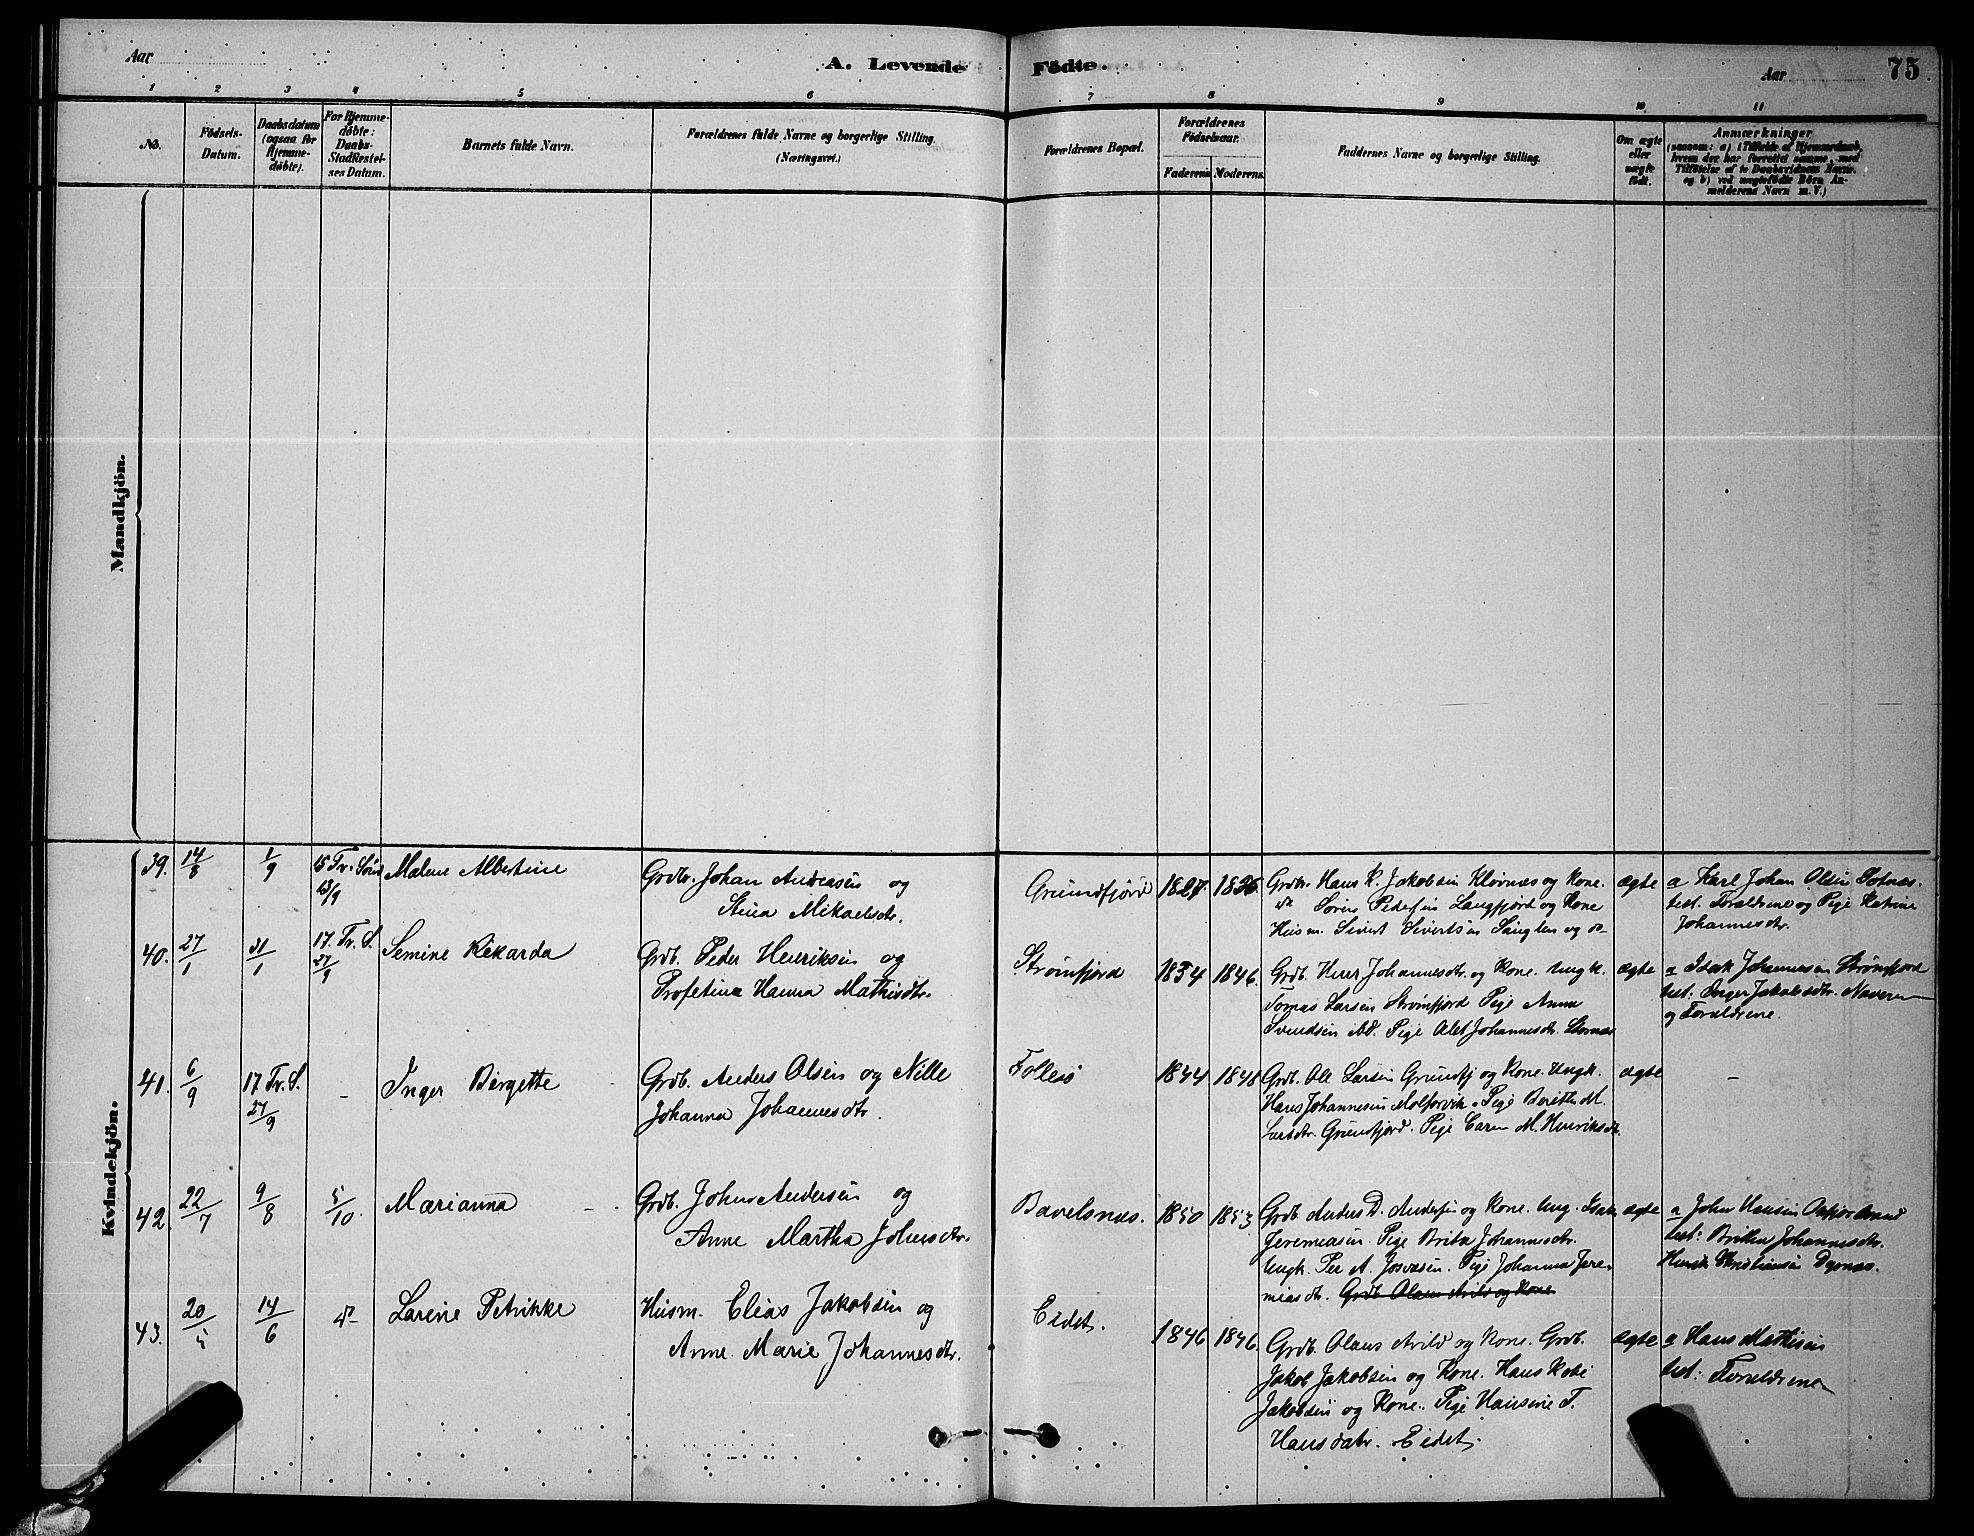 Aar
A. Levende Födte.
Aar
75
1 2 3 4 5 6 7 8 9 10 11
No.
Födsels-
Datum.
Daabsdatum
(ogsaa for
Hjemme-
döbte).
For Hjemme-
döbte:
Daabs-
Stadfæstel-
ses Datum.
Barnets fulde Navn.
Forældrenes fulde Navne og borgerlige Stilling.
(Næringsvei.)
Forældrenes Bopæl.
Forældrenes
Födselsaar.
Faderens Moderens
Faddernes Navne og borgerlige Stilling.
Om ægte
eller
uægte
født.
Anmærkninger
(saasom: a) i Tilfælde af Hjemmedaab,
hvem der har forrettet samme, med
Tilföielse af to Daabsvidners Navne.
og b) ved uægtefödte Börn An-
melderens Navn m. V.)
Mandkjön.
Kvindekjön.
39. 14/8 1/9 15 Tr. Sønd 13/9
Malene Albertine
Grdbr. Johan Andreasen og
Stina Mikaelsdtr.
Grundfjord 1827. 1835.
Grdbr. Hans K. Jakobsen Klovnæs og Kone.
Søren Pedersen Langfjord og Kone
Husm. Sivert Sivertsen og do
ægte
a Karl Johan Olsen
test. Forældrene og Pige Katrine
Johannesdtr.
40. 27/1 31/1 17. Tr. S. 27/9
Semine Rikarda
Grdb. Peder Henriksen og
Profetina Hanna Mathisdtr.
Strømfjord 1834 1846.
Grdb. Johannesdtr. og Kone. Ungk.
Tomas Larsen Strømfjord Pige Anna
Svendsen ibd. Pige Alet Johannesdtr. Stornæs
ægte
a Isak Johannesen Strømfjord
test: Inger Jakobsdtr. Naveren
og Forældrene.
41. 6/9 17 Tr. S. 27/9 -
Inger Birgette
Grdb. Anders Olsen og Nille
Johanna Johannesdtr.
Follesø 1844 1848
Grdb. Ole Larsen Grundfj og Kone. Ungk.
Hans Johannesen Molforvik. Pige Berith M.
Larsdtr. Grundfjord. Pige Caren M. Henriksdtr.
ægte -
42. 22/7 9/8 5/10.
Marianna
Grdb. Johan Andersen og
Anne Martha Johnsdtr.
Bavelsnæs. 1850 1853
Grdb Anders D. Andersen og Kone. Ung. Isak
Jeremiasen. Pige Brita Johannesdtr.
Ungk. Per A. Josvasen. Pige Johanna Jere-
miasdtr. Grdb. Olaus Arild og Kone
ægte
a John Hansen
test: Brithe Johannesdtr.
Henrik Kristiansen Dyrnæs.
43. 20/5 14/6
Larine Petrikke
Husm. Elias Jakobsen og
Anne Marie Johannesdtr.
Eidet. 1846 1846.
Grdb. Olaus Arild og Kone. Grdb.
Jakob Jakobsen og Kone. Hans Kobi
Jakobsen og Kone. Pige Hansine T.
Hansdatr. Eidet.
ægte
a Hans Mathisen
test: Forældrene